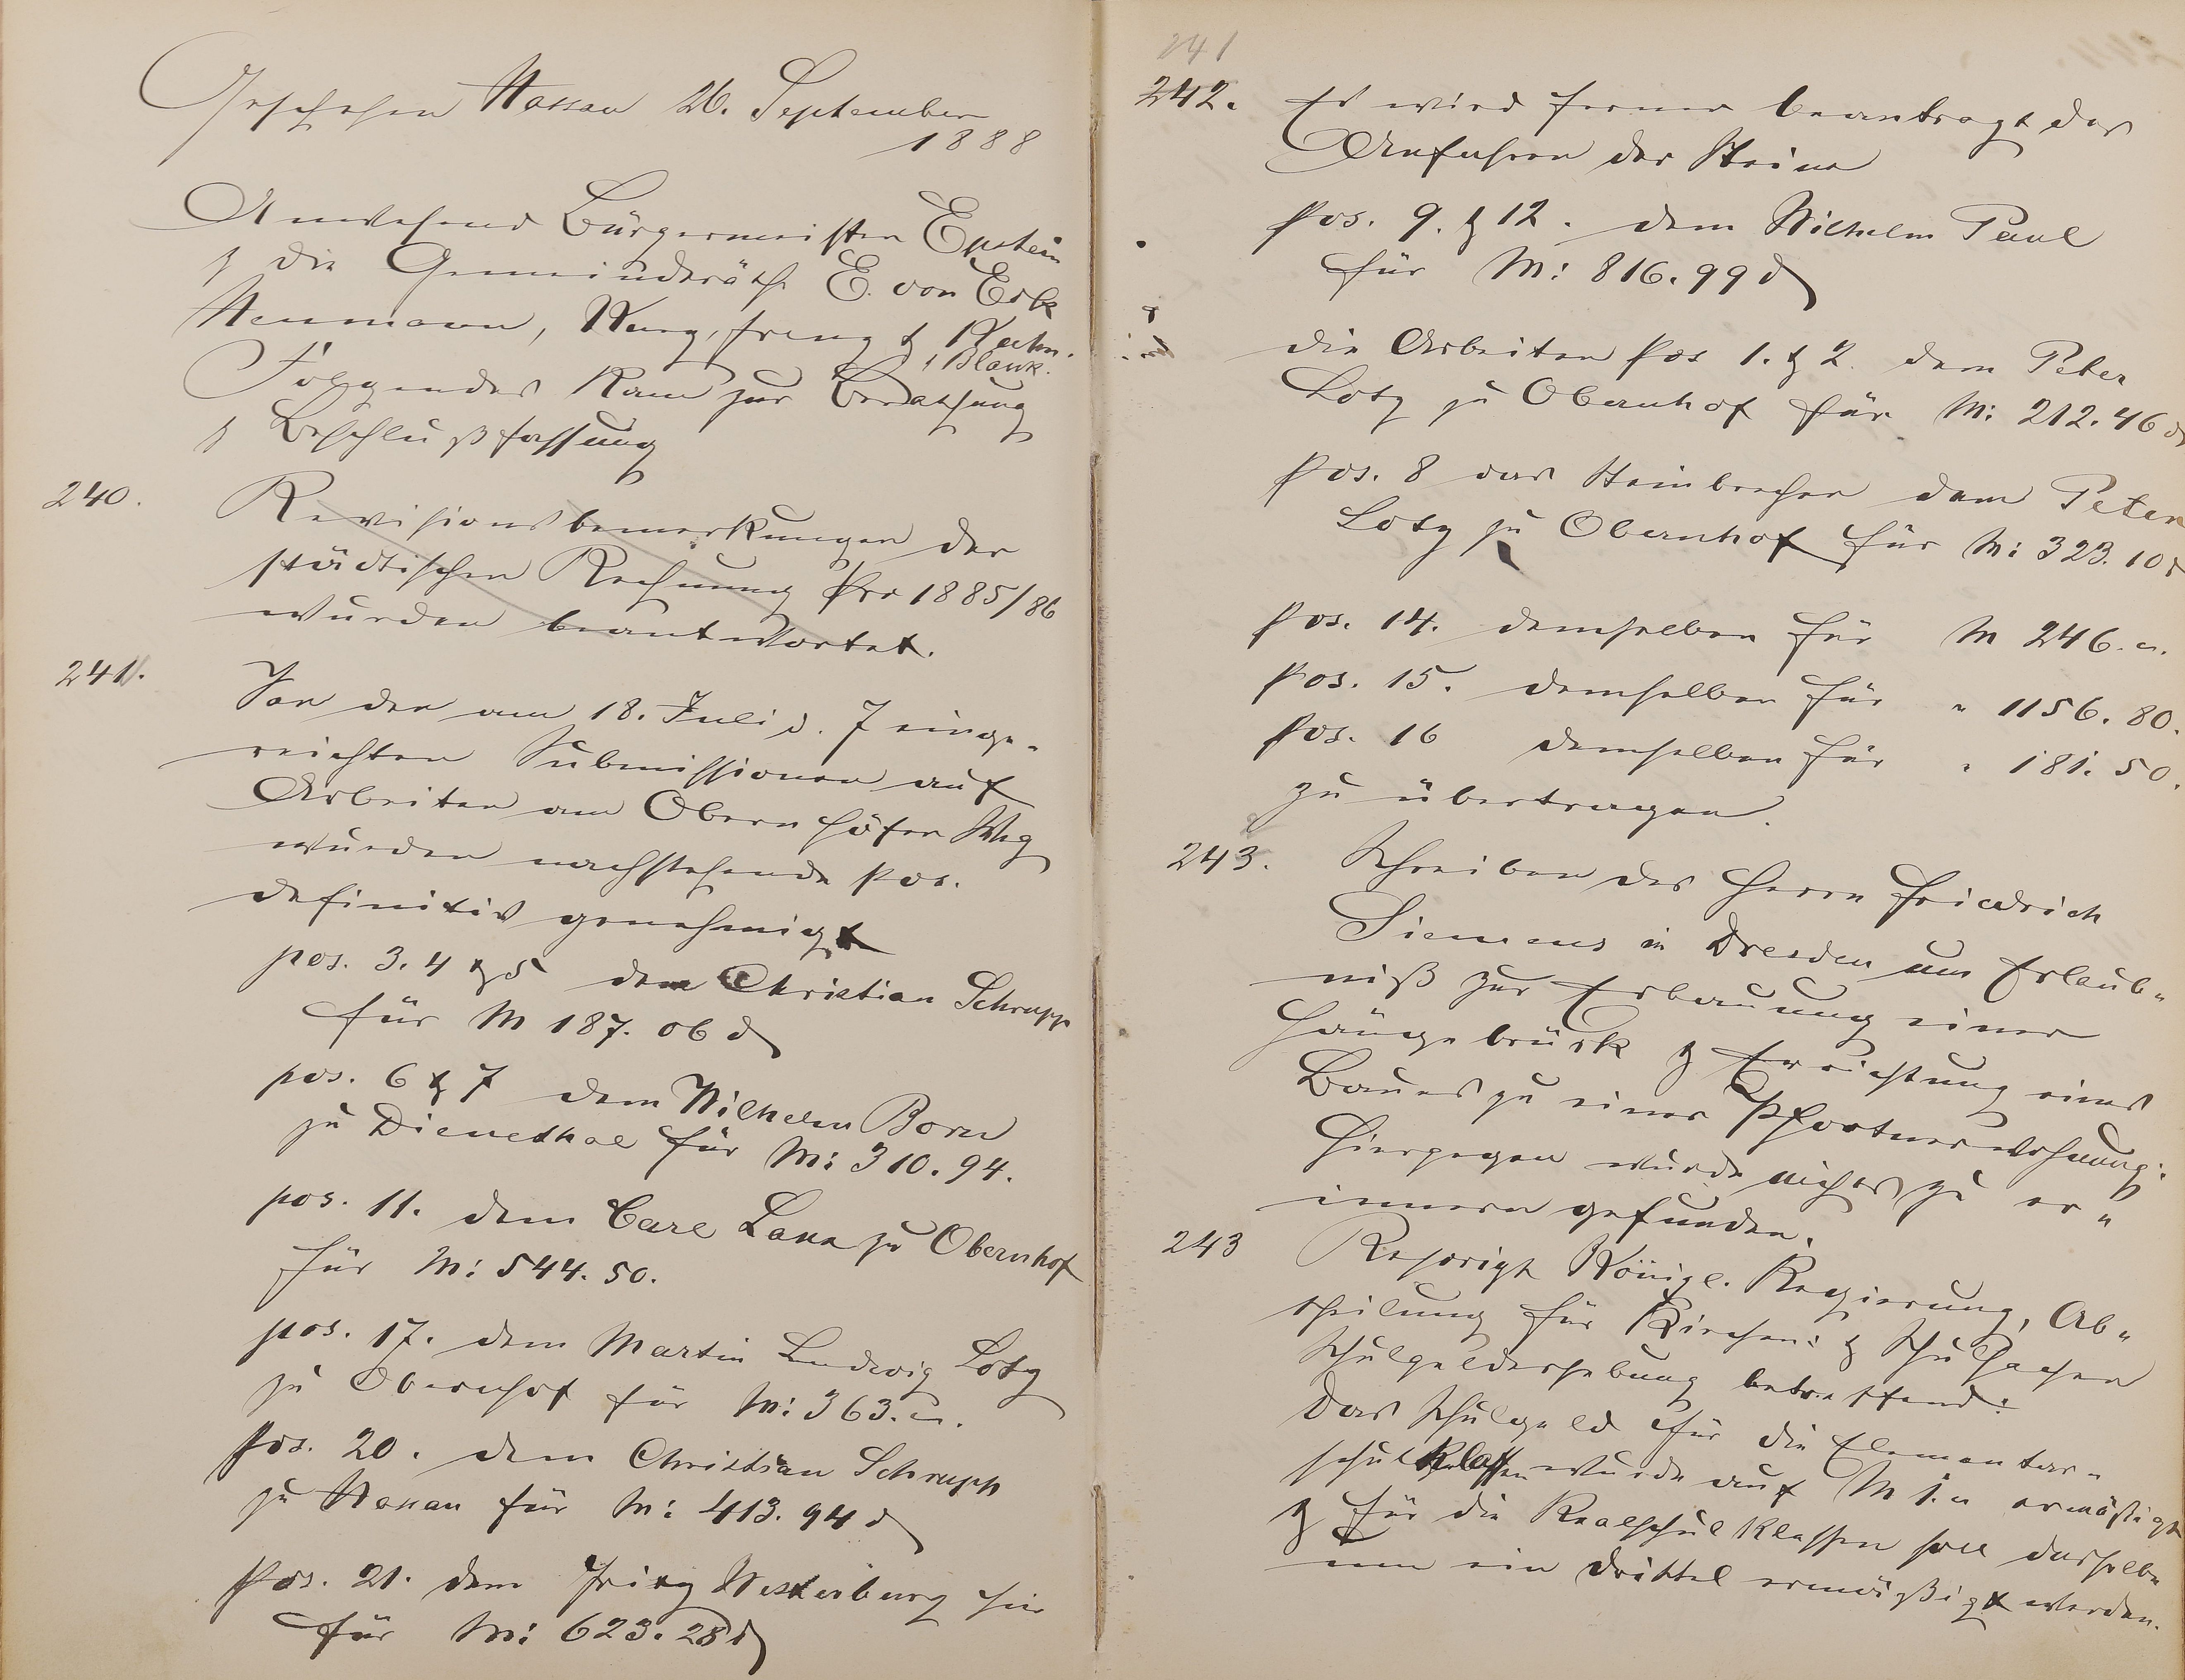 Geschehen Nassau 26. September
1888
Anwesend Bürgermeister Epstein
& die Gemeinderäthe E. von Eck
Neumann, Kunz, & Kuhn.
, Blank.
Folgendes kam zur Berathung
& Beschlußfassung
240. Revisionsbemerkungen der
städtischen Rechnung pro 1885/86
wurden beantwortet.
241. Von den am 18. Juli d. J einge-
reichten Submissionen auf
Arbeiten am Obernhöfer Weg
wurden nachstehende pos.
definitiv genehmigt
pos. 3. 4 & 5 dem Christian Schrupp
für M 187. 06 d
pos. 6 & 7 dem Wilhelm Born
zu Dienethal für M: 310. 94.
pos. 11. dem Carl Lana zu Obernhof
für M: 544. 50.
pos. 17. dem Martin Ludwig Lotz
zu Obernhof für M: 363. „.
pos. 20. dem Christian Schrupp
zu Nassau für M: 413. 94 d
pos. 21. dem Fritz Westerburg hier
für M: 623. 28 d
241
242. Es wird ferner beantragt das
Anfahren der Steine
pos. 9. & 12. dem Wilhelm Paul
für M: 816. 99 d
die Arbeiten pos 1. & 2. dem Peter
Lotz zu Obernhof für M: 212. 46 d
pos. 8 das Steinbrechen dem Peter
Lotz zu Obernhof für M: 323. 10 d
pos. 14. demselben für M 246. „.
pos. 15. demselben für „ 1156. 80.
pos. 16 demselben für „ 181. 50.
zu übertragen.
243. Schreiben des Herrn Friedrich
Siemens in Dresden um Erlaub-
niß zur Erbauung einer
Hängebrück & Errichtung eines
Baues zu einer Pförtnerwohnung:
Hiergegen wurde nichts zu er-
innern gefunden.
243 Rescript Königl. Regierung, Ab-
theilung für Kirchen: & Schulsachen
Schulgelderhebung betreffend:
Das Schulgeld für die Elementar-
schulklassen wurde auf M 1. „ ermäßigt
& für die Realschulklassen soll dasselbe
um ein Drittel ermäßigt werden.